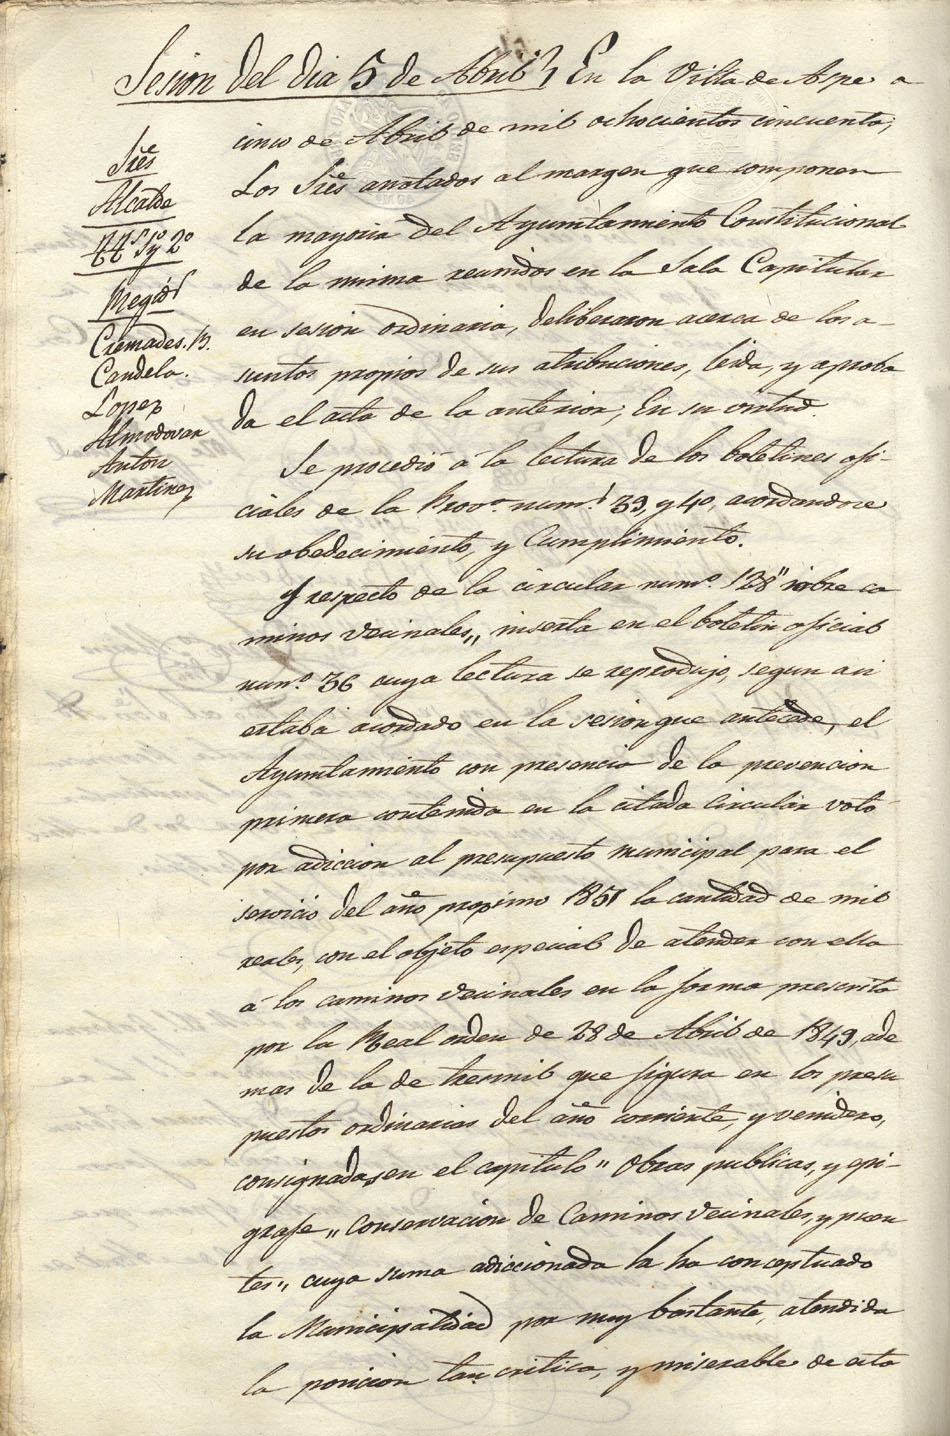 Sesion del dia 5 de Abril } En la Villa de Aspe a
cinco de Abril de mil ochocientos cincuenta;
Los Sres anotados al margen que componen
la mayoria del Ayuntamiento Constitucional
de la misma reunidos en la Sala Capitular
en sesion ordinaria, deliberaron acerca de los a-
suntos propios de sus atribuciones, leida, y aproba
da el acta de la anterior; En su virtud.
Sres
Alcalde
TTs 1º y 2º
Regid.s
Cremades. B.
Candela.
Lopez
Almodovar
Anton
Martinez
Se procedió á la lectura de los boletines ofi-
ciales de la Prov.a num.s 39, y 40, acordandose
su obedecimiento, y Cumplimiento.
Y respecto de la circular num.o 128 " sobre ca
minos vecinales,, inserta en el boletin oficial
num.o 36 cuya lectura se reprodujo, segun asi
estaba acordado en la sesion que antecede, el
Ayuntamiento con presencia de la prevencion
primera contenida en la citada Circular votó
por adiccion al presupuesto municipal para el
servicio del año proximo 1851 la cantidad de mil
reales, con el objeto especial de atender con ella
á los caminos vecinales en la forma prescrita
por la Real orden de 28 de Abril de 1849, ade
mas de la de tresmil que figura en los presu
puestos ordinarios del año corriente, y venidero,
consignadas en el capitulo " Obras publicas, y epi-
grafe ,, Conservacion de Caminos vecinales, y puen
tes,, cuya suma adiccionada la ha conceptuado
la Municipalidad por muy bastante, atendida
la posicion tan critica, y miserable de esta